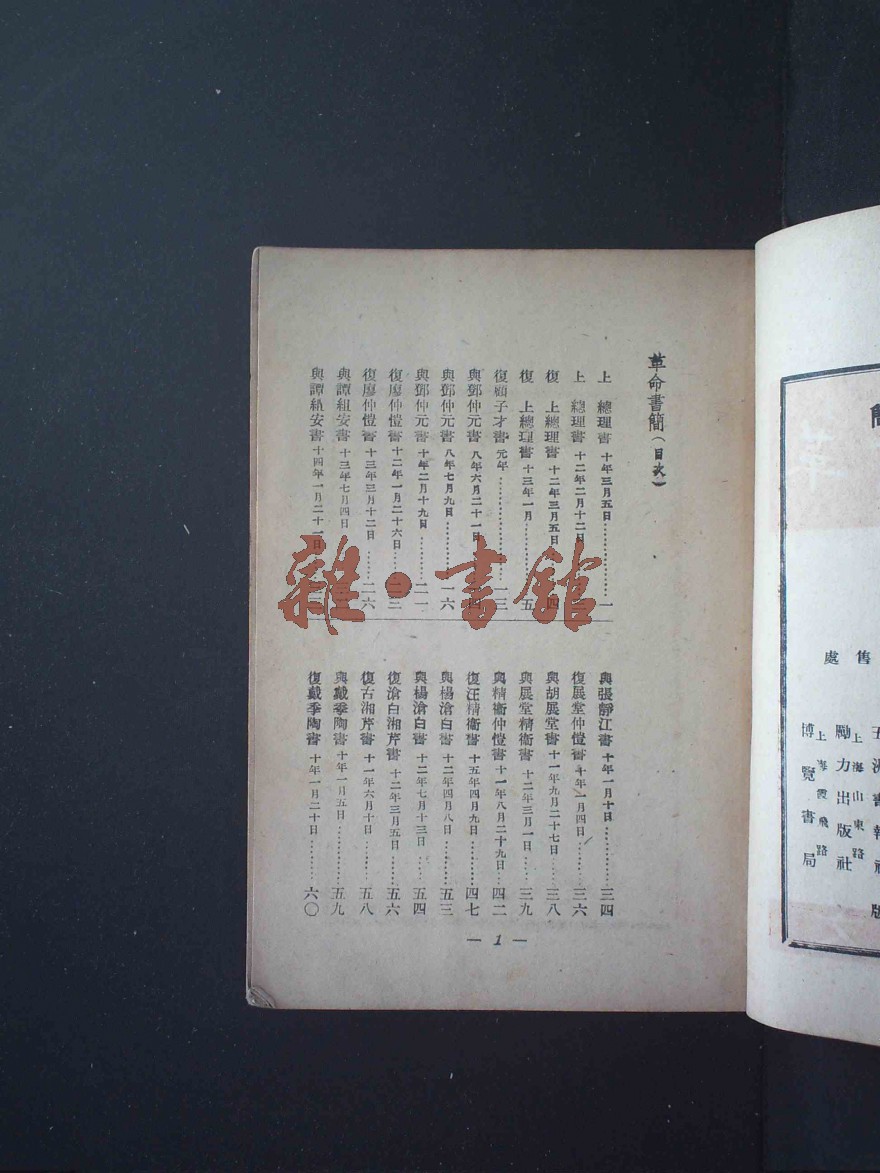 革命書簡(目次)
上　總理書 十年三月五日……………一
上　總理書 十二年二月十二日
復　上總理書 十二年三月五日……四
復　上總理書 十三年一月……五
復顧子才書 元年……
與鄧仲元書 八年六月二十一日
與鄧仲元書 八年七月九日……一六
與鄧仲元書 十年二月十九日……二一
復廖仲愷書 十二年一月二十六日
復廖仲愷書 十三年三月十二日……二六
與譚組安書 十三年七月四日
與譚組安書 十四年一月二十二日
與張靜江書 十年一月十日……三四
復展堂仲愷書 十年一月四日……三六
與胡展堂書 十一年九月二十七日……三八
與展堂精衞書 十二年三月一日……三九
與精衞仲愷書 十一年八月二十九日……四二
復汪精衞書 十五年四月九日……四七
與楊滄白書 十二年四月八日……五三
與楊滄白書 十二年七月十三日……五四
復滄白湘芹書 十二年三月五日……五六
復古湘芹書 十一年六月十日……五八
與戴季陶書 十年一月五日……五九
復戴季陶書 十年一月二十日……六〇
— 1 —
雜·書館
售處
五洲書報社
上海山東路
勵力出版社
上海霞飛路
博覽書局
版